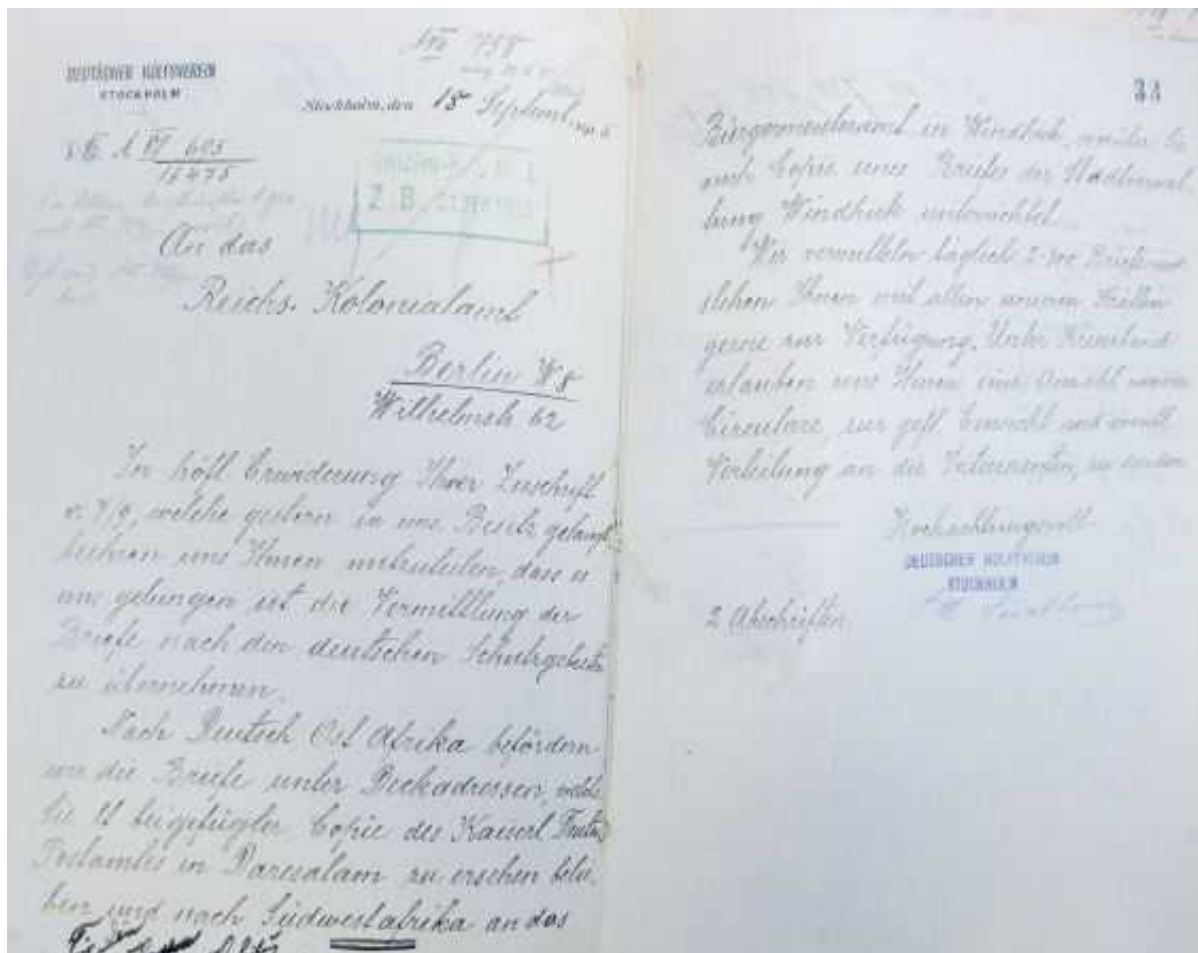 DEUTSCHER HÜLFSVEREIN
STOCKHOLM
758
Stockholm, den 15 September
A IV 603
An das
Reichs. Kolonialamt
Berlin W 8
Wilhelmstr 62
In höfl Erwiderung Ihrer Zuschrift
v. 7/9, welche gestern in uns. Besitz gelangt
beehren uns Ihnen mitzuteilen, dass es
uns gelungen ist die Vermittlung der
Briefe nach den deutschen Schutzgebieten
zu übernehmen.
Nach Deutsch Ost Afrika befördern
wir die Briefe unter Deckadressen, welche
Sie beigefügter Copie des Kaiserl
Postamtes in Daressalam zu ersehen belie-
ben und nach Südwestafrika an das
34
Bürgermeisteramt in Windhuk, worüber Sie
auch Copie eines Briefes der Stadtverwal-
tung Windhuk unterrichtet.
Wir vermitteln täglich 2-300 Briefe und
stehen Ihnen mit allen unseren Kräften
gerne zur Verfügung. Unter Kreuzband
erlauben uns Ihnen eine Anzahl unserer
Circulare, zur gefl. Einsicht und eventl
Verteilung an die Interessenten, zu senden
Hochachtungsvoll
DEUTSCHER HÜLFSVEREIN
STOCKHOLM
2 Abschriften.